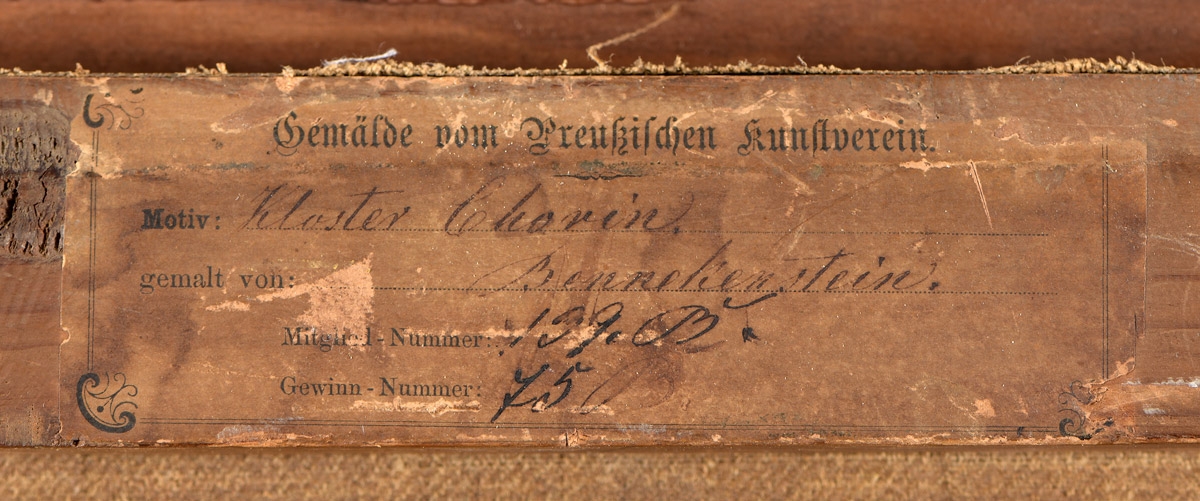 Gemälde vom Preußischen Kunstverein.
Motiv: Kloster Chorin.
gemalt von: Bennekenstein.
Mitglied-Nummer: 139. B.
Gewinn-Nummer: 75